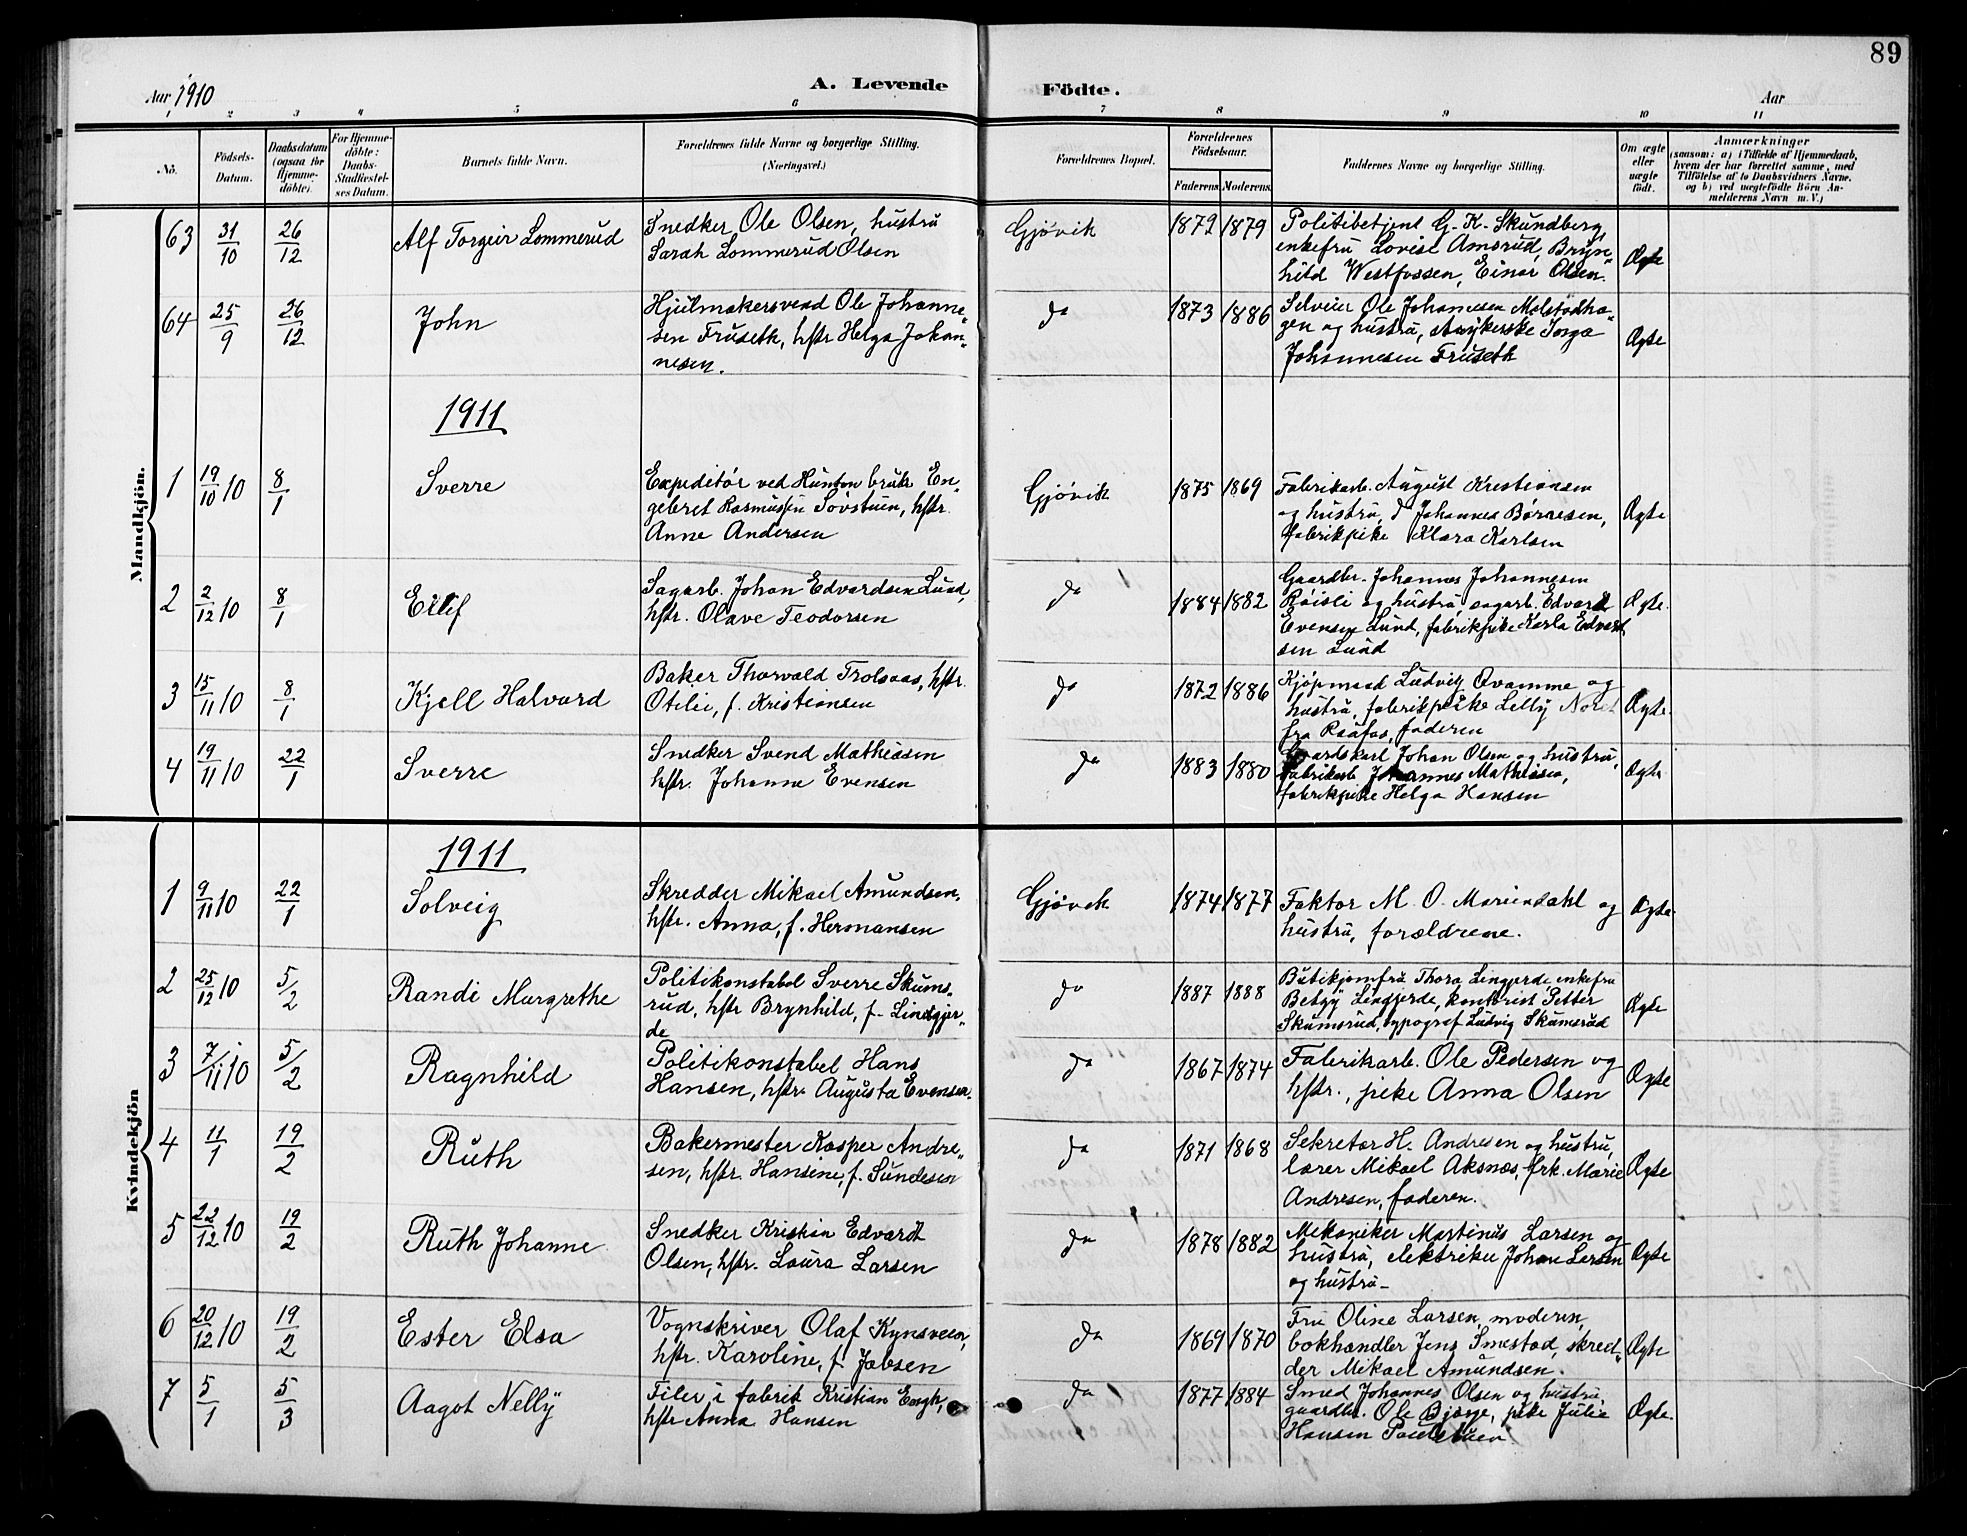 89
Aar 1910
A. Levende
Födte.
Aar
1 2 3 4 5 6 7 8 9 10 11
No.
Födsels-
Datum.
Daabsdatum
(ogsaa for
Hjemme-
döbte).
For Hjemme-
döbte:
Daabs-
Stadfæstel-
ses Datum.
Barnets fulde Navn.
Forældrenes fulde Navne og borgerlige Stilling.
(Næringsvei.)
Forældrenes Bopæl.
Forældrenes
Födselsaar.
Faderens. Moderens.
Faddernes Navne og borgerlige Stilling.
Om ægte
eller
uægte
födt.
Anmærkninger
(saasom: a) i Tilfælde af Hjemmedaab,
hvem der har forrettet samme, med
Tilföielse af to Daabsvidners Navne,
og b) ved uægtefödte Börn An-
melderens Navn m. V.)
Mandkjön.
63 31/10 26/12 Alf Torgeir Lommerud
Snedker Ole Olsen, hustru
Sarah Lommerud Olsen
Gjøvik 1872 1879
Politibetjent G. K. Skundberg,
enkefru Lovise Amsrud, Bryn-
hild Westfossen, Einar Olsen.
Ægte
64 25/9 26/12 John
Hjulmakersvend Ole Johanne-
sen Fruseth, hstr Helga Johan-
nesen.
do 1873 1886
Selveier Ole Johannesen Melstødha-
gen og hustru, strykerske Inga
Johannesen Fruseth
Ægte
1911
1 19/10 10 8/1 Sverre
Expeditør ved Hunton bruk En-
gebret Rasmussen Sovstuen, hstr.
Anne Andersen
Gjøvik 1875 1869
Fabrikarb. August Kristiansen
og hustru, Johannes Børresen,
fabrikpike Klara Karlsen
Ægte
2 2/12 10 8/1 Eilif
Sagarb. Johan Edvardsen Lund,
hstr. Olave Teodorsen
do 1884 1882
Gaardbr. Johannes Johannesen
Røisli og hustru, sagarb. Edvard
Evensen Lund, fabrikpike Karla Edvard
sen Lund
Ægte.
3 15/11 10 8/1 Kjell Halvard
Baker Thorvald Trolsaas, hstr.
Otilie, f. Kristiansen
do 1872 1886
Kjøpmand Ludvig Qvamme og
hustru, fabrikpike Lilly
fra Raufos, faderen
Ægte.
4 19/11 10 22/1 Sverre
Snedker Svend Mathiassen
hstr. Johanna Evensen
do 1883 1880
Gaardskarl Johan Olsen og hustru,
fabrikarb. Johannes Mathisen,
fabrikpike Helga Hansen
Ægte
Kvindekjön
1911
1 9/11 10 22/1 Solveig
Skredder Mikael Amundsen,
hstr. Anna, f. Hermansen
Gjøvik 1874 1877
Faktor M. O. Mariendahl og
hustru, forældrene.
Ægte.
2 25/12 10 5/2 Randi Margrethe
Politikonstabel Sverre Skums-
rud, hstr Brynhild, f. Lindgjer-
de
do 1887 1888
Butikjomfru Thora Lingjerde, enkefru
Betzy Lingjerde, kontorist Petter
Skumsrud, typograf Ludvig Skumsrud
Ægte
3 7/11 10 5/2 Ragnhild
Politikonstabel Hans
Hansen, hstr. Augusta Evensen.
do 1867 1874
Fabrikarb. Ole Pedersen og
hstr., pike Anna Olsen
Ægte
4 11/1 19/2 Ruth
Bakermester Kasper Andre-
sen, hstr. Hansine, f. Sundesen
do 1871 1868
Sekretær H. Andresen og hustru,
lærer Mikael Aksnæs, frk. Marie
Andresen, faderen.
Ægte
5 22/12 10 19/2 Ruth Johanne
Snedker Kristian Edvardt
Olsen, hstr. Laura Larsen
do 1878 1882
Mekaniker Martinus Larsen og
hustru, elektriker Johan Larsen
og hustru.
Ægte
6 20/12 10 19/2 Ester Elsa
Vognskriver Olaf Kynsveen,
hstr. Karoline, f. Jabsen
do 1869 1870
Fru Oline Larsen, moderen,
bokhandler Jens Smestad, skred-
der Mikael Amundsen.
Ægte
7 5/1 5/3 Aagot Nelly
Filer i fabrik Kristian Engh,
hstr Anna Hansen
do 1877 1884
Smed Johannes Olsen og hustru,
gaardbr. Ole Bjørge, pike Julie
Hansen
Ægte.